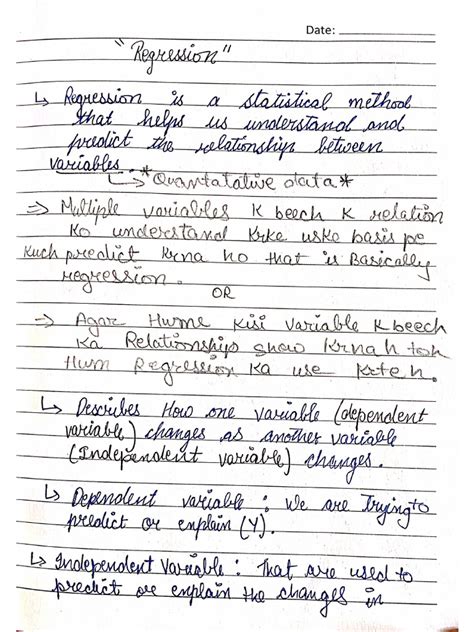 Date:
"Regression"
↳ Regression is a statistical method
that helps us understand and
predict the relationships between
variables.
↳ *Quantatative data*
⇒ Multiple variables K beech K relation
Ko understand Krke uske basis pe
Kuch predict Krna ho that is Basically
regression.
OR
⇒ Agar Hume Kisi variable K beech
Ka Relationship show Krna h toh
Hum Regression Ka use Krte h.
↳ Describes How one variable (dependent
variable) changes as another variable
(Independent variable) changes.
↳ Dependent variable : We are Trying to
predict or explain (Y).
↳ Independent Variable : that are used to
predict or explain the changes in